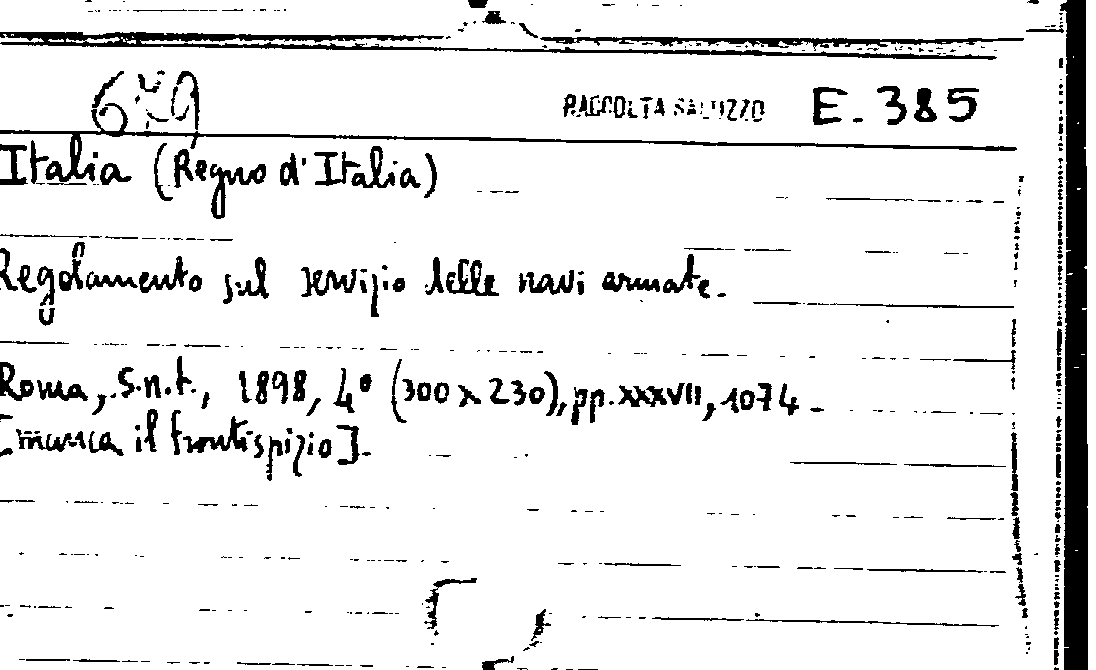 RACCOLTA SALUZZO E. 385
Italia (Regno d'Italia)
Regolamento sul servizio delle navi armate.
Roma, s.n.t., 1898, 4° (300 x 230), pp. XXXVII, 1074.
[manca il frontispizio].